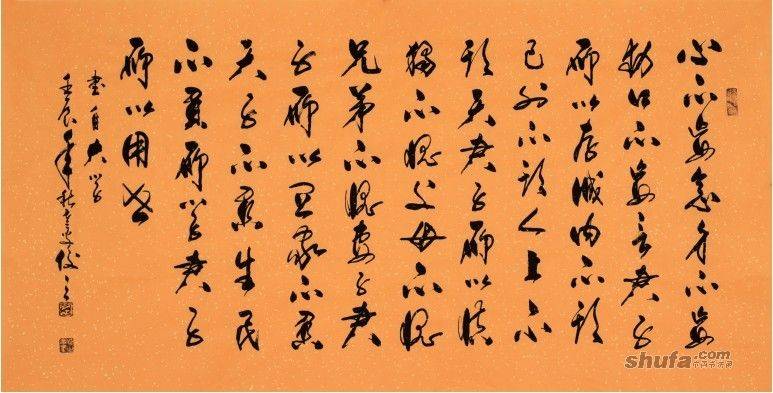 心不妄念身不妄
動口不妄言君子
所以存誠内不欺
己外不欺人上不
欺天君子所以慎
獨不愧父母不愧
兄弟不愧妻子君
子所以宜家不負
天子不負生民
不負所學君子
所以用世
書自大學
壬辰年秋
shufa.com